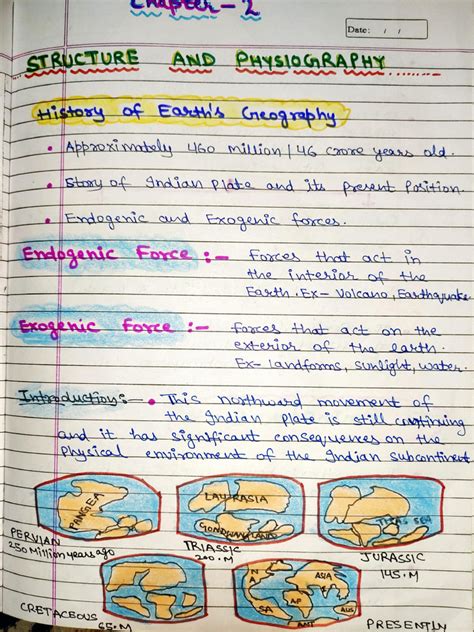 Chapter - 2
Date: / /
STRUCTURE AND PHYSIOGRAPHY
History of Earth's Geography
• Approximately 460 million / 46 crore years old.
• Story of Indian Plate and its Present Position.
• Endogenic and Exogenic forces.
Endogenic Force :- Forces that act in
the interior of the
Earth. Ex- Volcano, Earthquake
Exogenic Force :- forces that act on the
exterior of the earth.
Ex- landforms, sunlight, water.
Introduction:- • This northward movement of
the Indian Plate is still continuing
and it has significant consequences on the
Physical environment of the Indian subcontinent.
PANGEA
LAURASIA
GONDWANALAND
SEA
PERVIAN
250 Million years ago
TRIASSIC
200.M
JURASSIC
145.M
NA
ASIA
SA
AF
AUS
ANT
CRETACEOUS
65.M
PRESENTLY